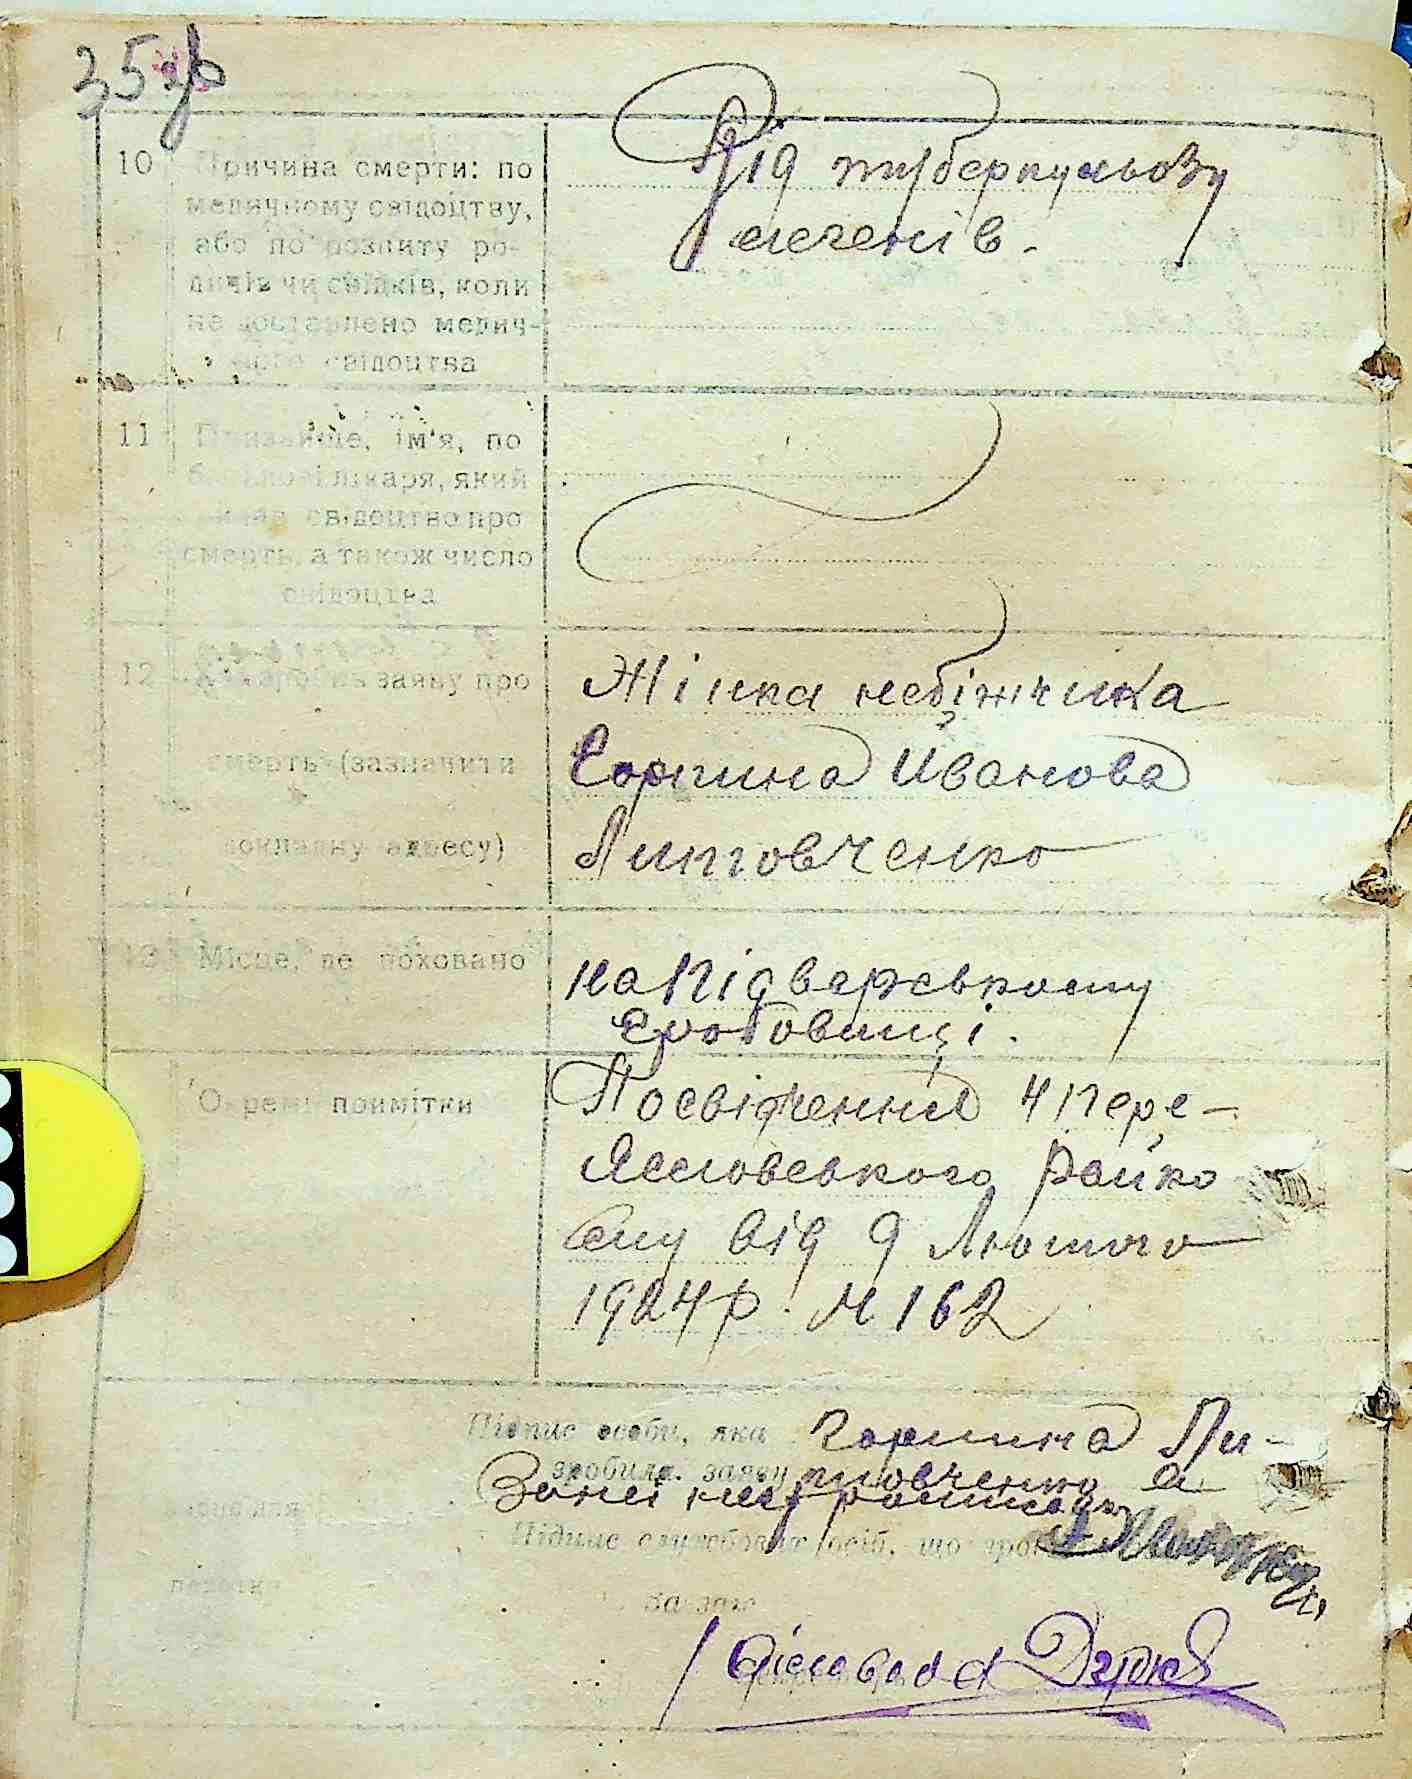 35 зв
10 Причина смерти: по
медичному свідоцтву,
або по розпиту ро-
дичів чи свідків, коли
не доставлено медич-
ного свідоцтва
Від туберкульозу
легенів.
11 Призвіще, ім'я, по
батькові лікаря, який
видав свідоцтво про
смерть, а також число
свідоцтва
12 заяву про
смерть (зазначити
докладну адресу)
Жінка небіжчика
Горпина Иванова
Липовченко
13 Місце, де поховано
на Підварському
гробовищі.
Окремі примітки
Посвідчення Пере-
яславського Райко
му від 9 Лютого
1924 р. № 162
Підпис особи, яка
зробила заяву
Горпина Ли-
повченко а
За неї неграмотну
Підпис службових осіб, що
Діловод